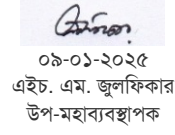 ০৯-০১-২০২৫
এইচ. এম. জুলফিকার
উপ-মহাব্যবস্থাপক